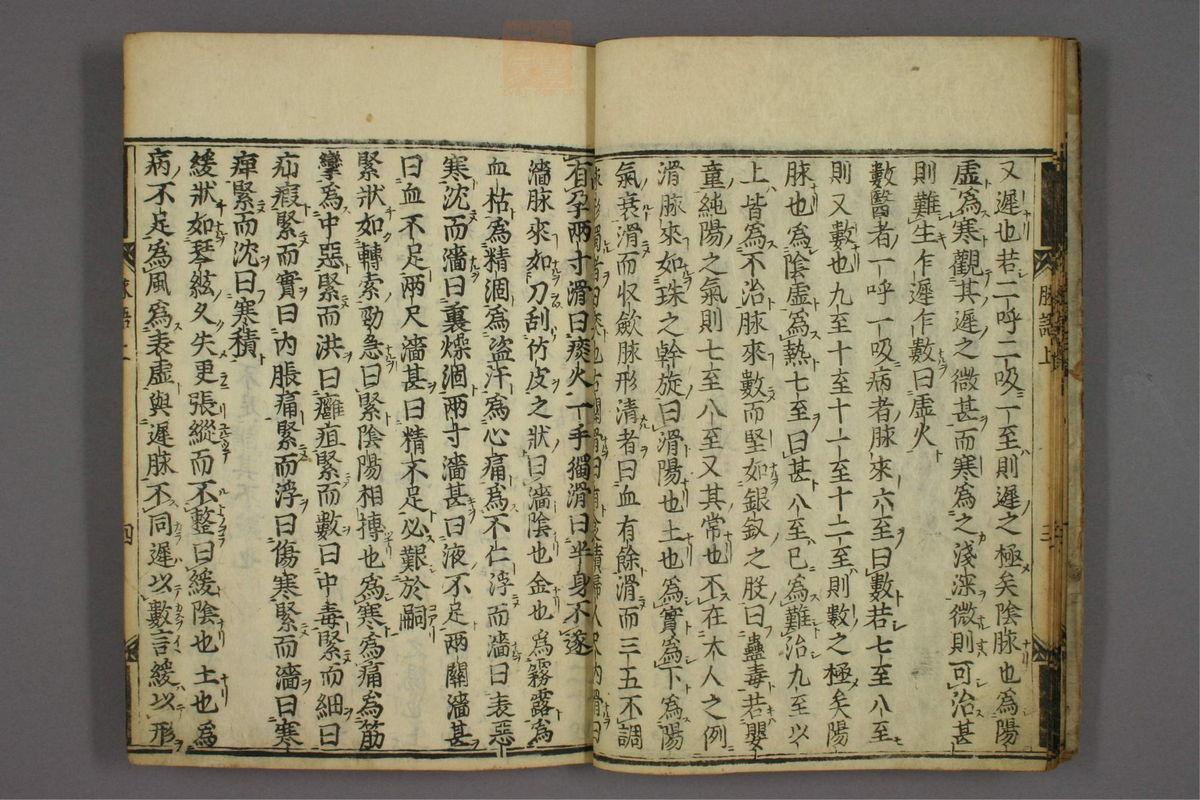 又遲也若二呼二吸一至則遲之極矣陰脉也為陽
虛為寒觀其遲之微甚而寒為之淺深微則可治甚
則難生乍遲乍數曰虛火
數醫者一呼一吸病者脉來六至曰數若七至八至
則又數也九至十至十一至十二至則數之極矣陽
脉也為陰虛為熱七至曰甚八至已為難治九至以
上皆為不治脉來數而堅如銀釵之股曰蠱毒若嬰
童純陽之氣則七至八至又其常也不在大人之例
滑脉來如珠之幹旋曰滑陽也土也為實為下為陽
氣衰滑而收斂脉形清者曰血有餘滑而三五不調
有孕兩寸滑曰痰火一手獨滑曰半身不遂
濇脉來如刀刮竹皮之狀曰濇陰也金也為霧露為
血枯為精涸為盜汗為心痛為不仁浮而濇曰表惡
寒沈而濇曰裏燥涸兩寸濇甚曰液不足兩關濇甚
曰血不足兩尺濇甚曰精不足必艱於嗣
緊狀如轉索勁急曰緊陰陽相搏也為寒為痛為筋
攣為中惡緊而洪曰癰疽緊而數曰中毒緊而細曰
疝瘕緊而實曰內脹痛緊而浮曰傷寒緊而濇曰寒
痺緊而沈曰寒積
緩狀如琴絃久失更張縱而不整曰緩陰也土也為
病不足為風為表虛與遲脉不同遲以數言緩以形
脉語上
三
四